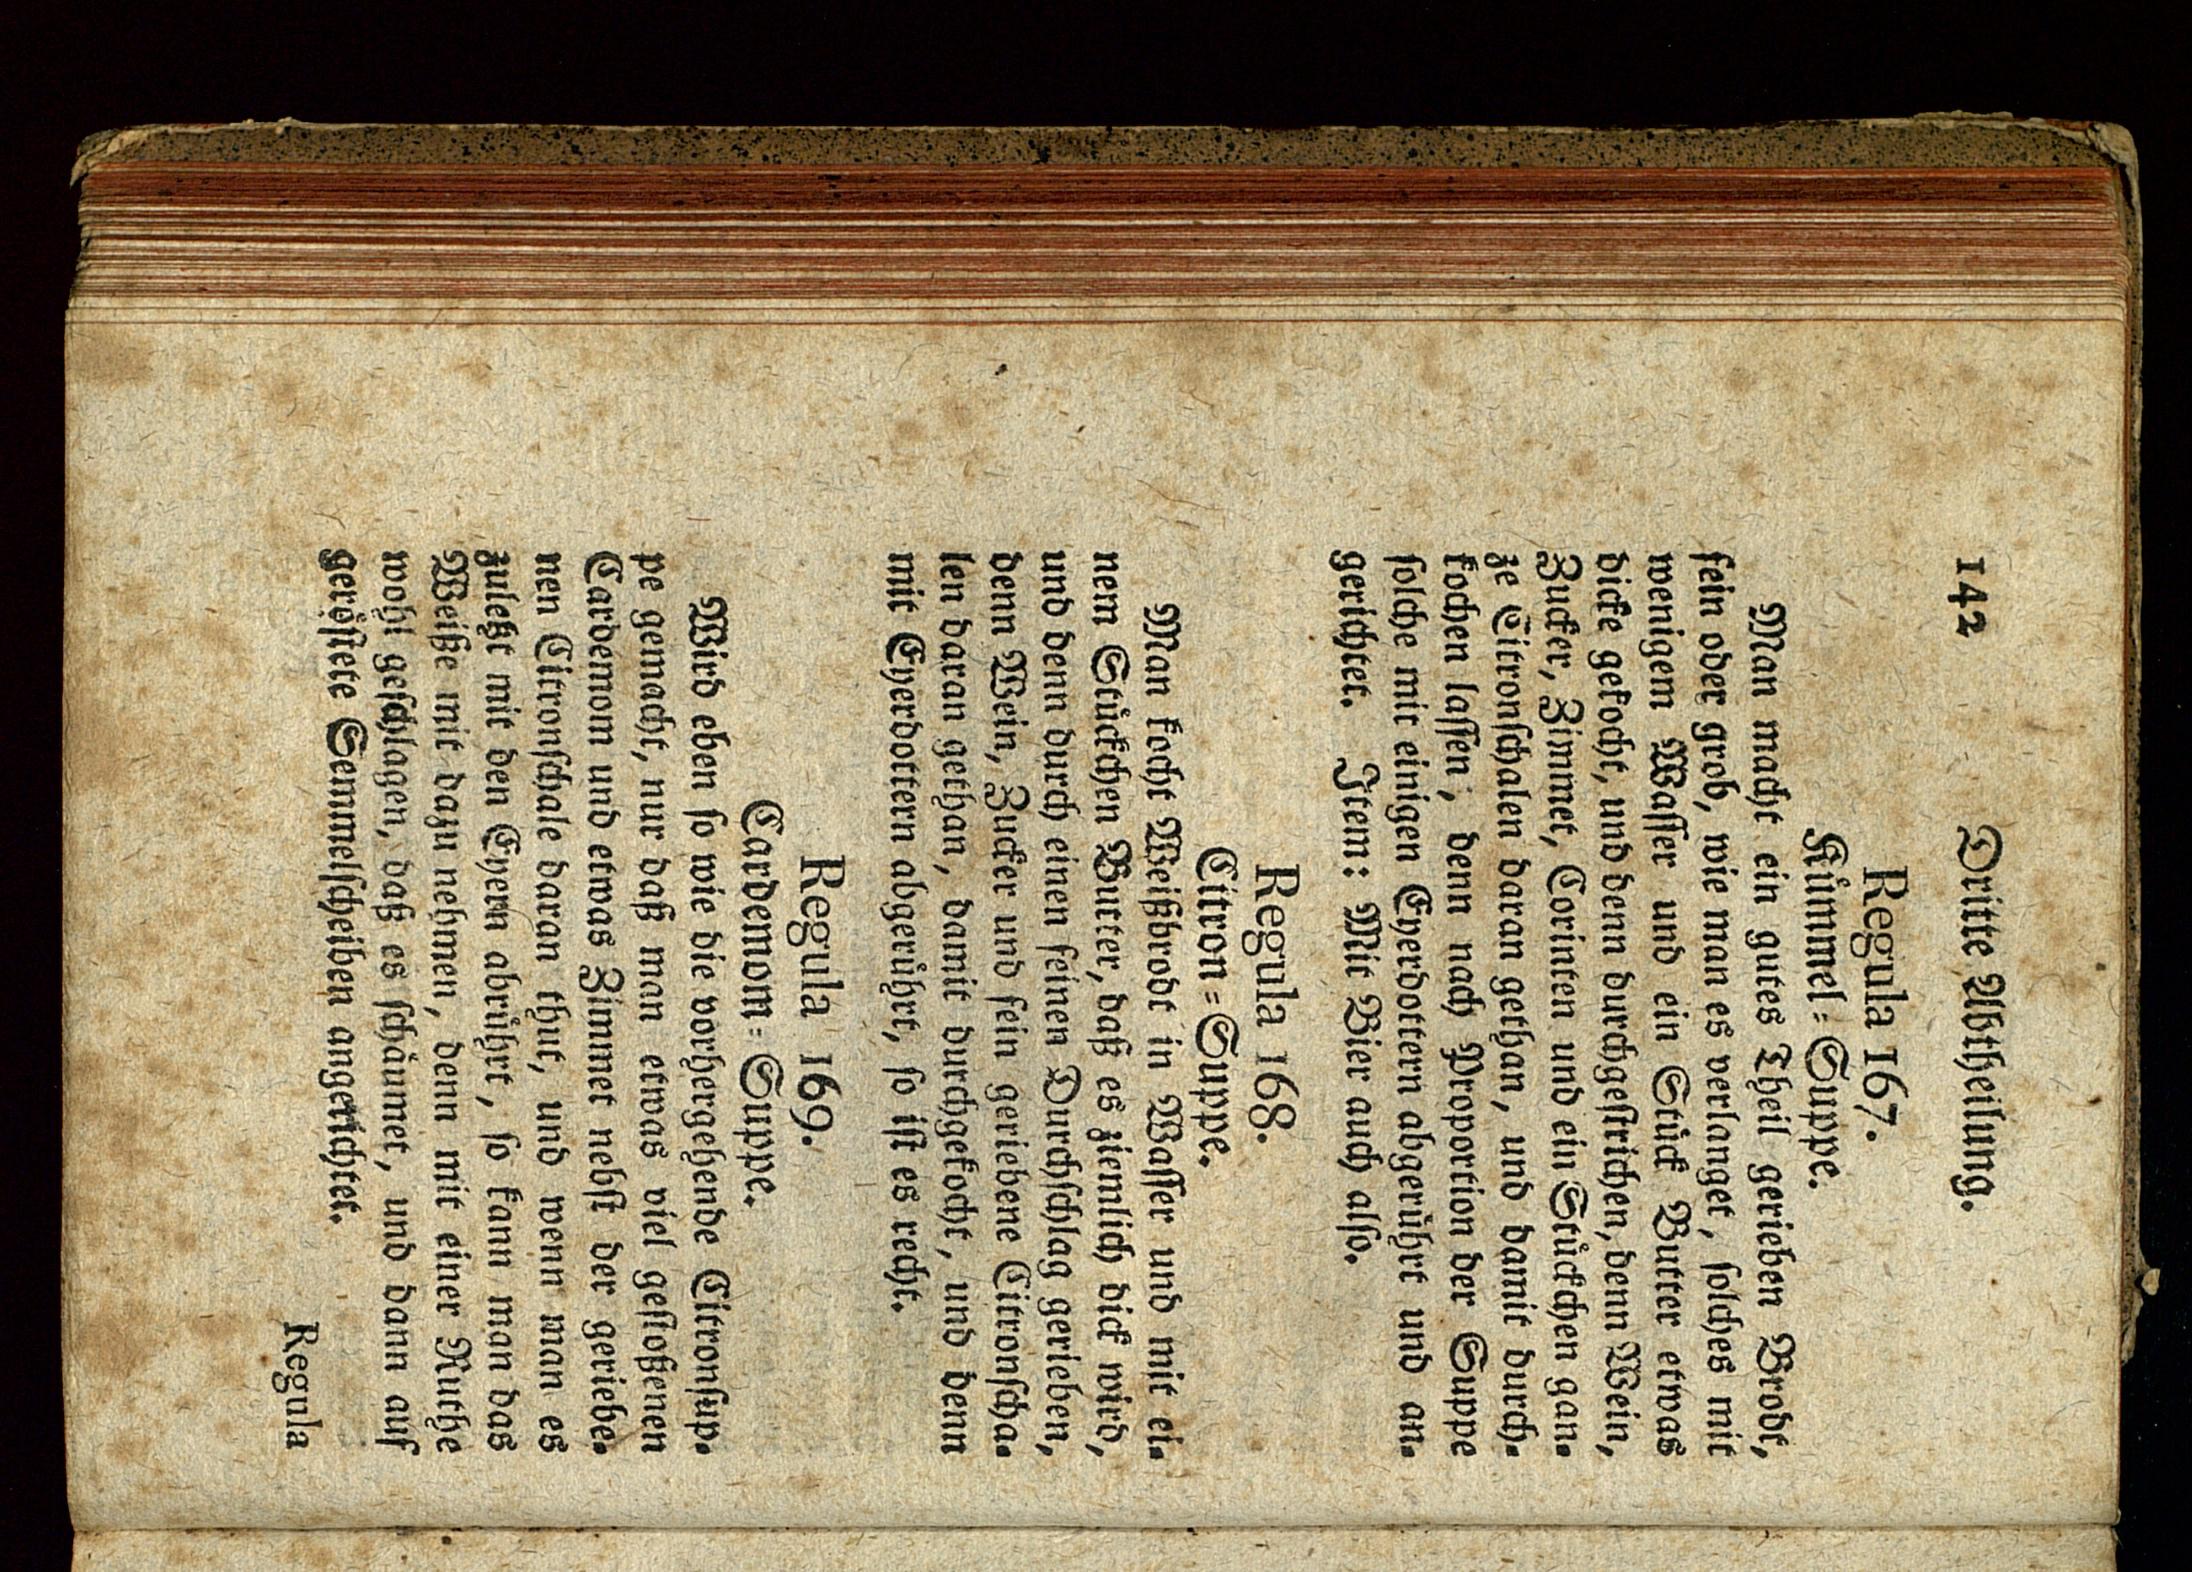 142 Dritte Abtheilung.
Regula 167.
Kuͤmmel=Suppe.
Man macht ein gutes Theil gerieben Brodt,
fein oder grob, wie man es verlanget, solches mit
wenigem Wasser und ein Stuͤck Butter etwas
dicke gekocht, und denn durchgestrichen, denn Wein,
Zucker, Zimmet, Corinten und ein Stuͤckchen gan-
ze Citronschalen daran gethan, und damit durch-
kochen lassen; denn nach Proportion der Suppe
solche mit einigen Eyerdottern abgeruͤhrt und an-
gerichtet. Item: Mit Bier auch also.
Regula 168.
Citron=Suppe.
Man kocht Weißbrodt in Wasser und mit ei-
nem Stuͤckchen Butter, daß es ziemlich dick wird,
und denn durch einen feinen Durchschlag gerieben,
denn Wein, Zucker und fein geriebene Citronscha-
len daran gethan, damit durchgekocht, und denn
mit Eyerdottern abgeruͤhrt, so ist es recht.
Regula 169.
Cardemom=Suppe.
Wird eben so wie die vorhergehende Citronsup-
pe gemacht, nur daß man etwas viel gestoßenen
Cardemom und etwas Zimmet nebst der geriebe-
nen Citronschale daran thut, und wenn man es
zuletzt mit den Eyern abruͤhrt, so kann man das
Weiße mit dazu nehmen, denn mit einer Ruthe
wohl geschlagen, daß es schaͤumet, und dann auf
geroͤstete Semmelscheiben angerichtet.
Regula